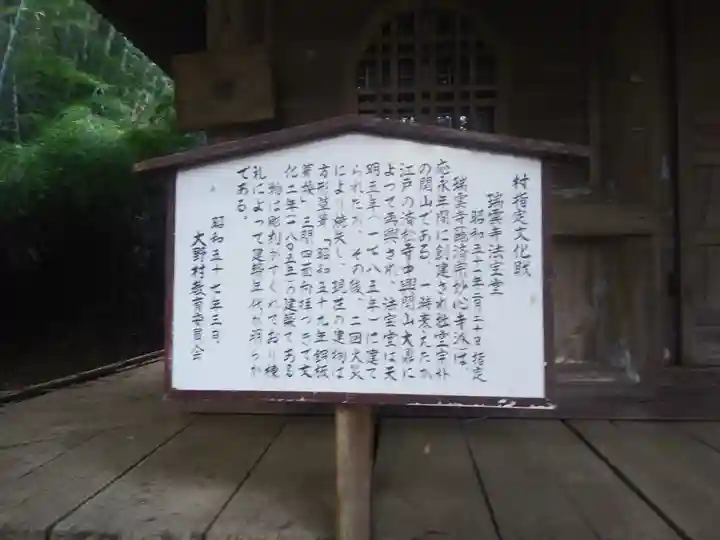 村指定文化財
瑞雲寺法宝堂
昭和五十一年二月二十日指定
瑞雲寺臨済宗妙心寺派は、
応永年間に創建され
の開山である。一時衰えたが
江戸の済松寺中興開山大鼎に
よって再興され、法宝堂は天
明三年(一七八三年)に建て
られたが、その後、二回火災
により焼失し、現在の建物は
方形草葺「昭和五十九年銅板
葺換」三間四面向拝つきで文
化二年(一八〇五年)の建築である
物に彫刻がてくれており棟
札によって建築年代が明らか
である。
昭和五十七、三、三日、
大野村教育委員会